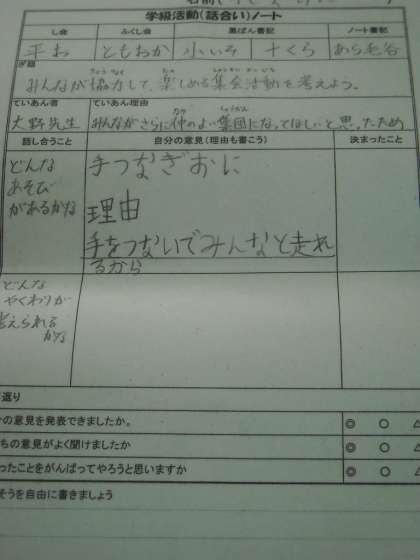 学級活動(話合い)ノート
し会 ふくし会 黒ばん書記 ノート書記
平お ともおか 小いそ 十くら あら毛谷
ぎ題
みんなが協力して、楽しめる集会活動を考えよう。
ていあん者 ていあん理由
大野先生 みんながさらに仲のよい集団になってほしいと思ったため
話し合うこと 自分の意見(理由も書こう) 決まったこと
どんな
あそび
があるかな
手つなぎおに
理由
手をつないでみんなと走れ
るから
どんな
やくわりが
考えられる
かな
返り
の意見を発表できましたか。 ◎ ○ △
ちの意見がよく聞けましたか ◎ ○ △
ったことをがんばってやろうと思いますか ◎ ○ △
そうを自由に書きましょう